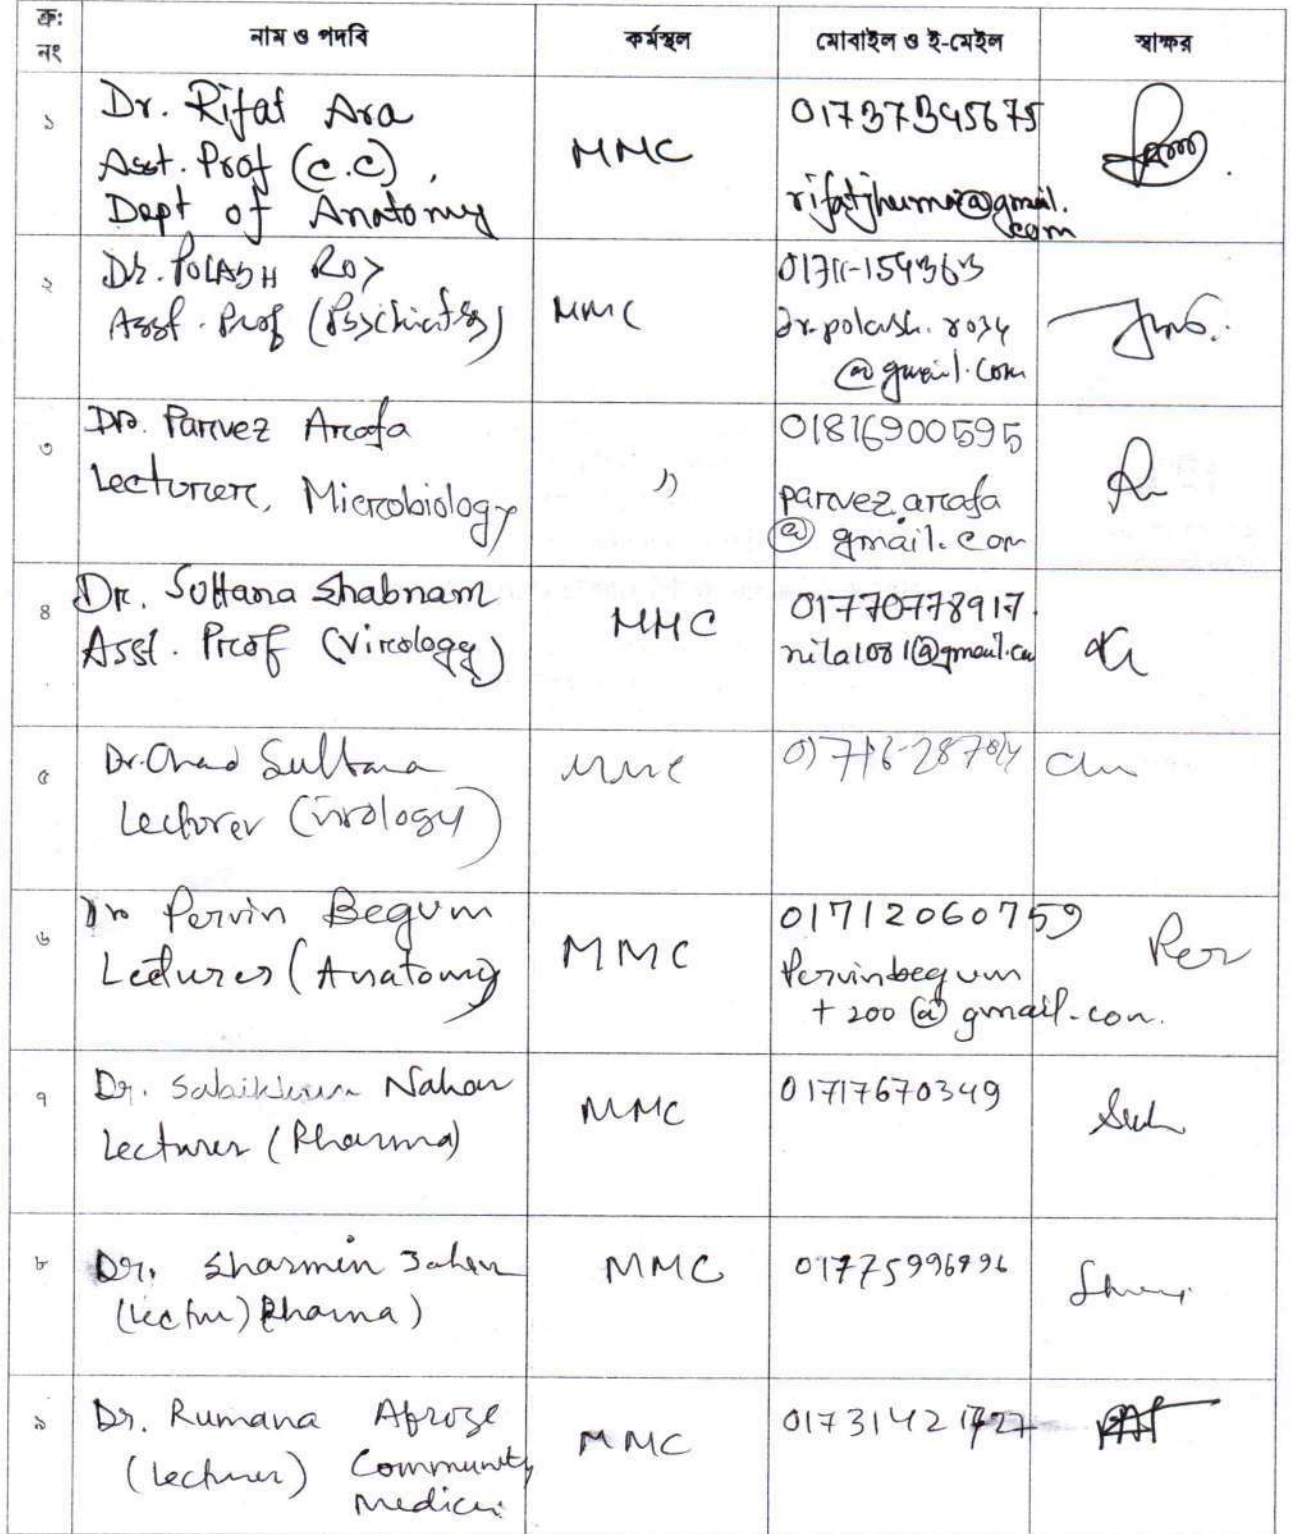 ক্র: নং	নাম ও পদবি	কর্মস্থল	মোবাইল ও ই-মেইল	স্বাক্ষর
১
Dr. Rifat Ara
Asst. Prof (C.C),
Dept of Anatomy
MMC
01737345675
rifatjhuma@gmail.
com
২
Dr. POLASH ROY
Asst. Prof (Psychiatry)
MMC
01711-154363
dr.polash.
@gmail.com
৩
Dr. Parvez Arafa
Lecturer, Microbiology
"
01816900595
parvez.arafa
@gmail.com
৪
Dr. Sultana Shabnam
Asst. Prof (Virology)
MMC
01770778917
nila1081@gmail.com
৫
Dr. Chad Sultana
Lecturer (Virology)
MMC
৬
Dr Pervin Begum
Lecturer (Anatomy)
MMC
01712060759
Pervinbegum
+200@gmail.com.
Per
৭
Dr. Nahar
Lecturer (Pharma)
MMC
01717670349
৮
Dr. Sharmin Jahan
(Lectur) Pharma)
MMC
৯
Dr. Rumana Afroze
(Lecturer) Community
Medicin
MMC